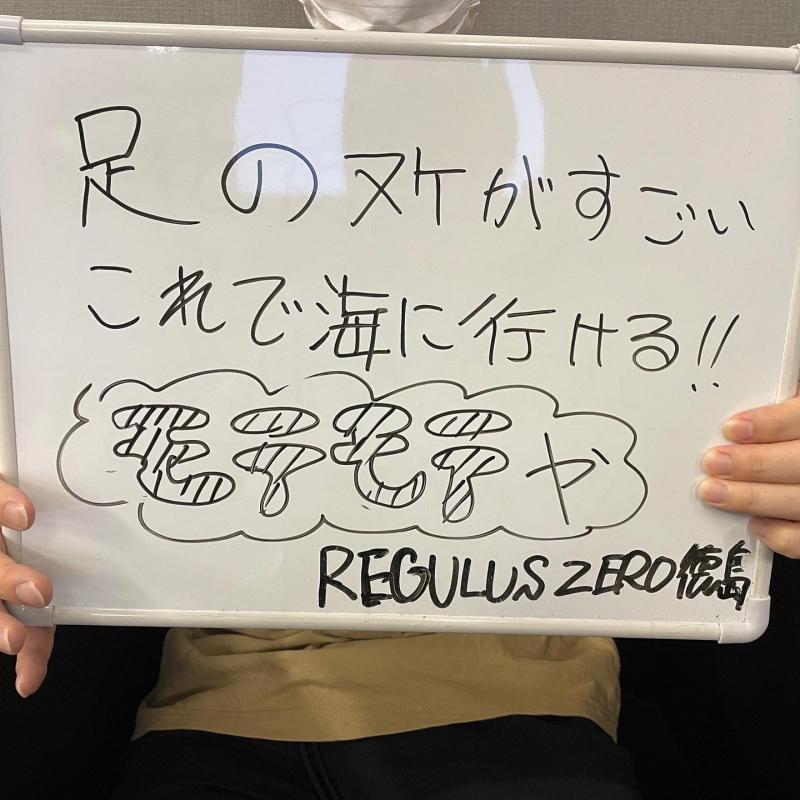 足のヌケがすごい
これで海に行ける!!
モテモテや
REGULUS ZERO徳島